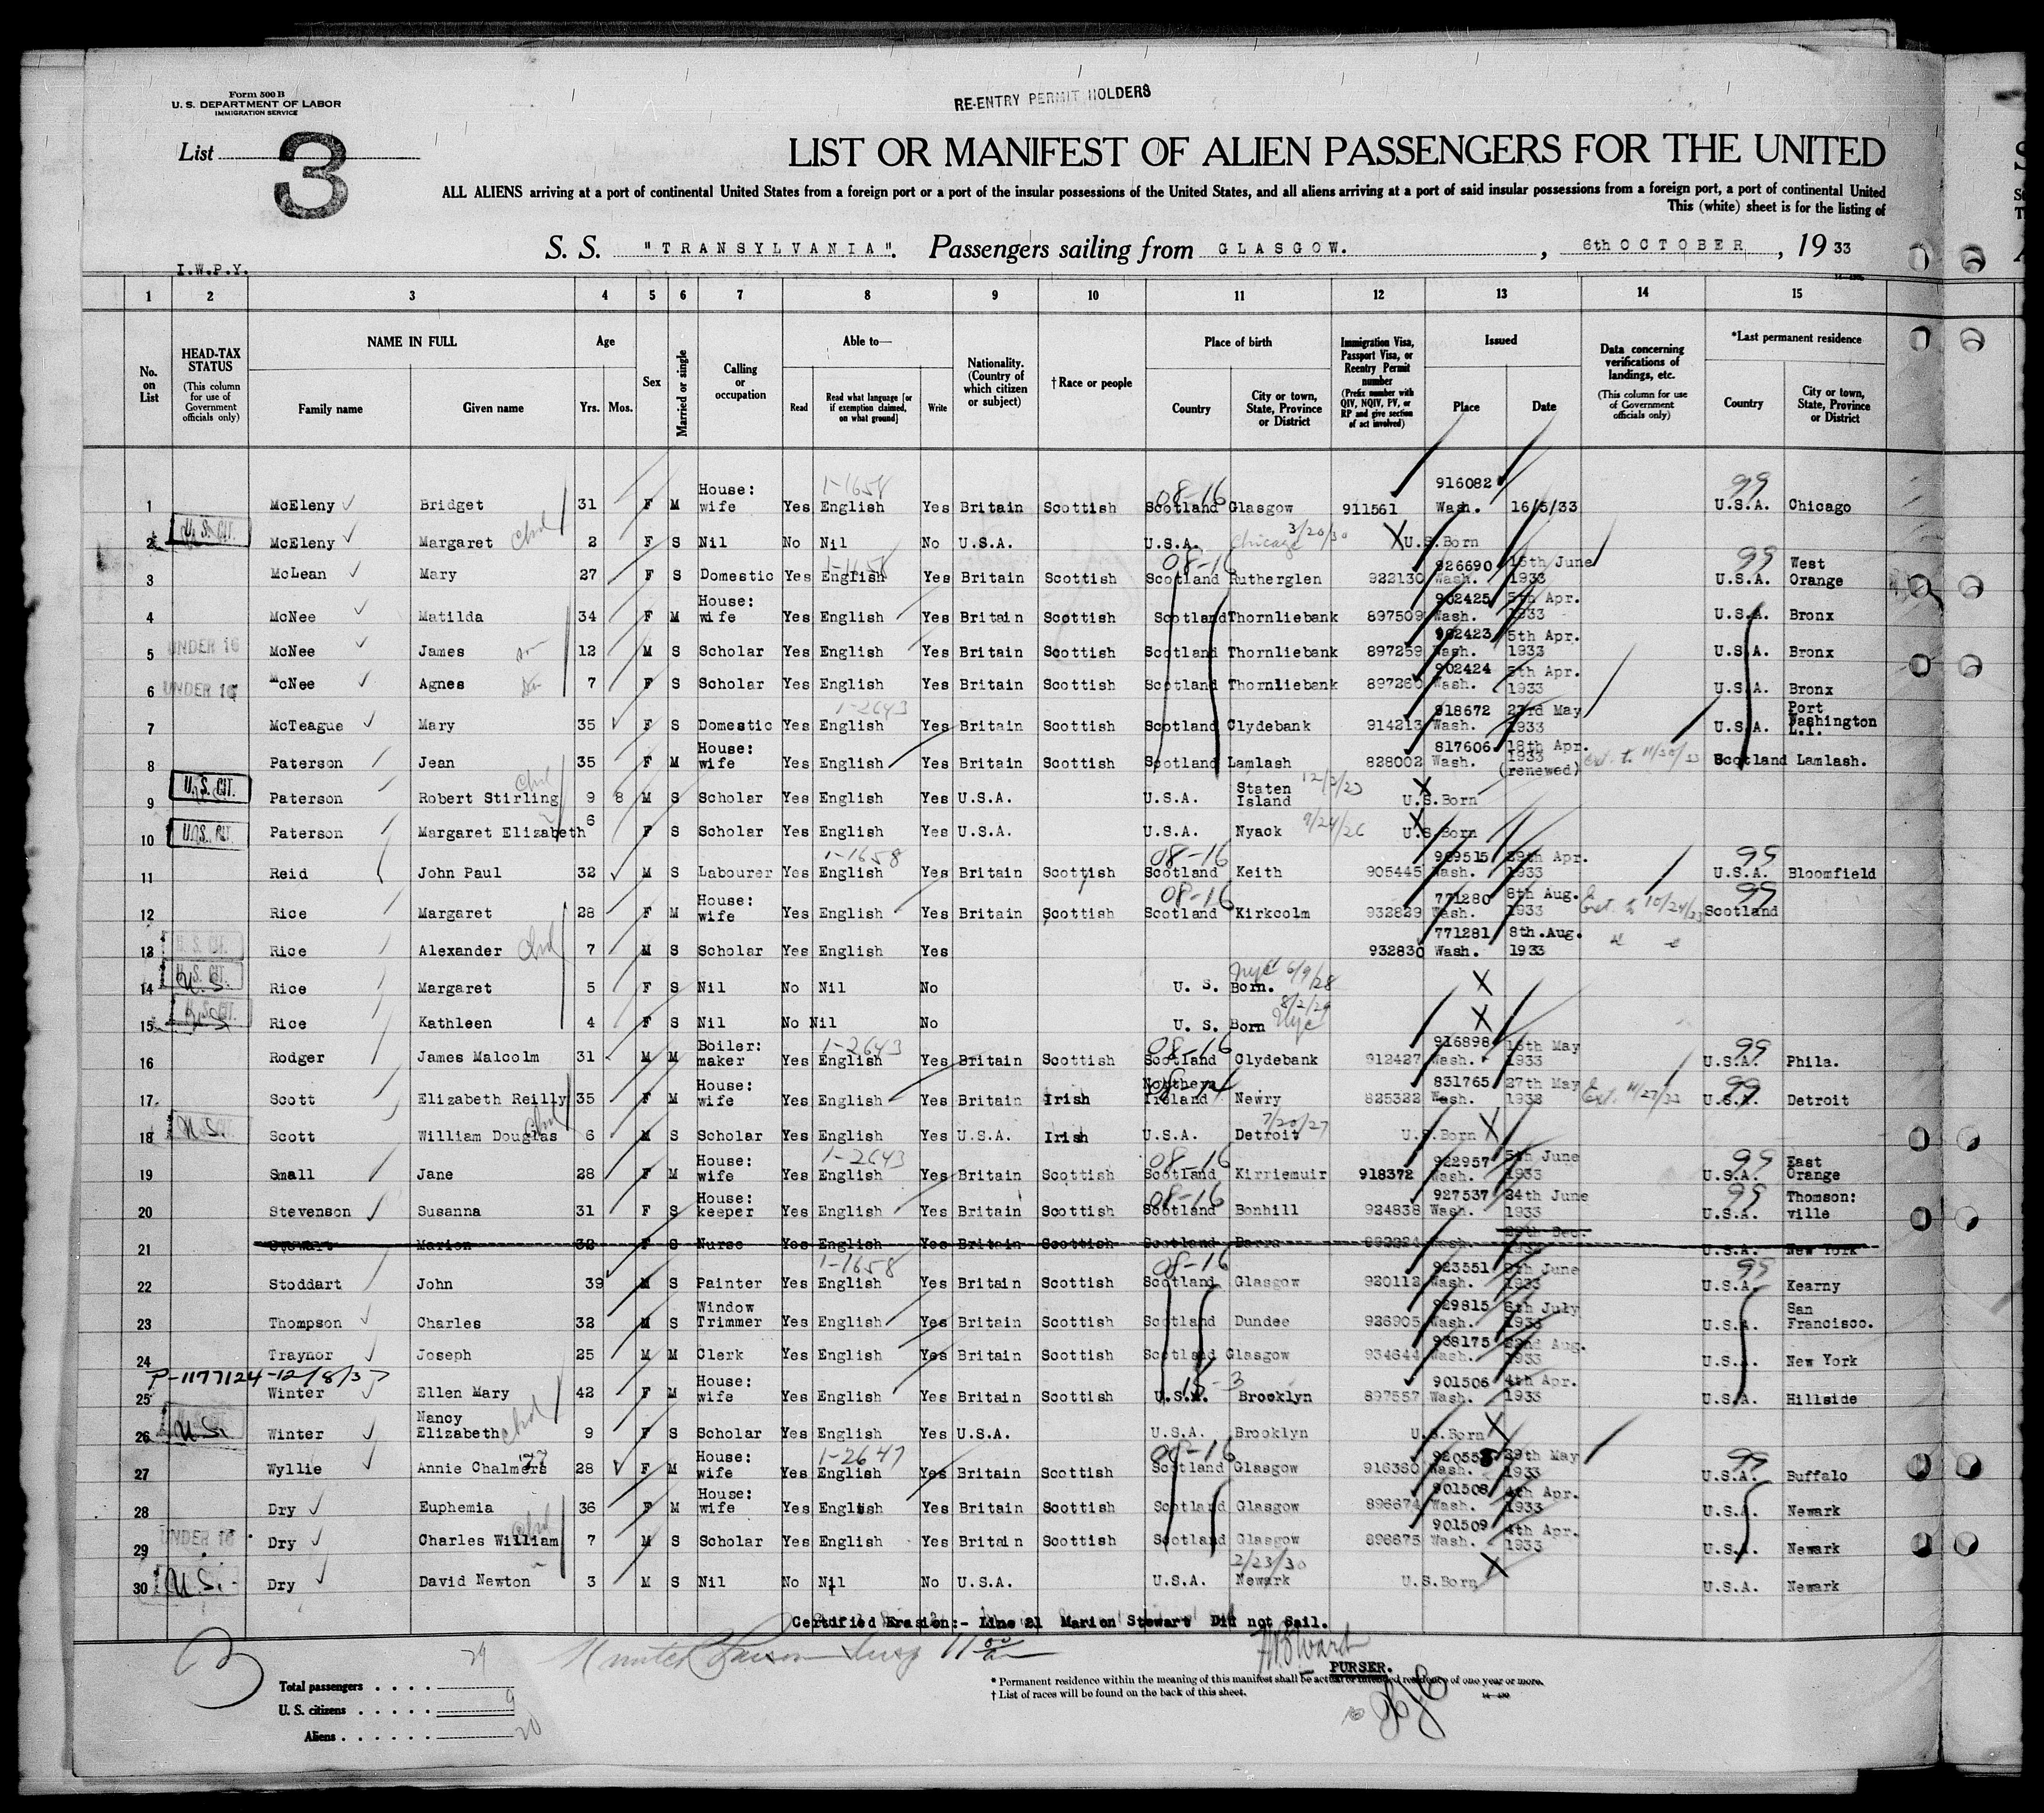 Form 500 B
U. S. DEPARTMENT OF LABOR
IMMIGRATION SERVICE
RE-ENTRY PERMIT HOLDERS
List 3
LIST OR MANIFEST OF ALIEN PASSENGERS FOR THE UNITED
ALL ALIENS arriving at a port of continental United States from a foreign port or a port of the insular possessions of the United States, and all aliens arriving at a port of said insular possessions from a foreign port, a port of continental United
This (white) sheet is for the listing of
S. S. "TRANSYLVANIA". Passengers sailing from GLASGOW. , 6th OCTOBER , 19 33
I.W.P.Y.
1 2 3 4 5 6 7 8 9 10 11 12 13 14 15
No. on List
HEAD-TAX STATUS (This column for use of Government officials only)
NAME IN FULL Family name Given name
Age Yrs. Mos.
Sex
Married or single
Calling or occupation
Able to— Read Read what language [or if exemption claimed, on what ground] Write
Nationality. (Country of which citizen or subject)
†Race or people
Place of birth Country City or town, State, Province or District
Immigration Visa, Passport Visa, or Reentry Permit number (Prefix number with QIV, NQIV, PV, or RP and give section of act involved)
Issued Place Date
Data concerning verifications of landings, etc. (This column for use of Government officials only)
*Last permanent residence Country City or town, State, Province or District
1 McEleny Bridget 31 F M House: wife Yes English 1-1658 Yes Britain Scottish Scotland 08-16 Glasgow 911561 916082 Wash. 16/5/33 99 U.S.A. Chicago
2 U.S. CIT. McEleny Margaret 2 F S Nil No Nil No U.S.A. U.S.A. Chicago 3/20/30 U.S.Born
3 McLean Mary 27 F S Domestic Yes English 1-1658 Yes Britain Scottish Scotland 08-16 Rutherglen 922130 926690 Wash. 15th June 1933 99 U.S.A. West Orange
4 McNee Matilda 34 F M House: wife Yes English Yes Britain Scottish Scotland Thornliebank 897509 902425 Wash. 5th Apr. 1933 U.S.A. Bronx
5 UNDER 16 McNee James 12 M S Scholar Yes English Yes Britain Scottish Scotland Thornliebank 897259 902423 Wash. 5th Apr. 1933 U.S.A. Bronx
6 UNDER 16 McNee Agnes 7 F S Scholar Yes English Yes Britain Scottish Scotland Thornliebank 897260 902424 Wash. 5th Apr. 1933 U.S.A. Bronx
7 McTeague Mary 35 F S Domestic Yes English 1-2643 Yes Britain Scottish Scotland Clydebank 914213 918672 Wash. 23rd May 1933 U.S.A. Port Washington L.I.
8 Paterson Jean 35 F M House: wife Yes English Yes Britain Scottish Scotland Lamlash 828002 817606 Wash. 18th Apr. 1933 (renewed) Ext. to 11/30/33 Scotland Lamlash.
9 U.S. CIT. Paterson Robert Stirling 9 8 M S Scholar Yes English Yes U.S.A. U.S.A. Staten Island U.S.Born
10 U.S. CIT. Paterson Margaret Elizabeth 6 F S Scholar Yes English Yes U.S.A. U.S.A. Nyack U.S.Born
11 Reid John Paul 32 M S Labourer Yes English 1-1658 Yes Britain Scottish Scotland 08-16 Keith 905445 909515 Wash. 29th Apr. 1933 99 U.S.A. Bloomfield
12 Rice Margaret 28 F M House: wife Yes English Yes Britain Scottish Scotland 08-16 Kirkcolm 932829 771280 Wash. 8th Aug. 1933 Ext. to 10/24/33 99 Scotland
13 U.S. CIT. Rice Alexander 7 M S Scholar Yes English Yes 932830 771281 Wash. 8th.Aug. 1933
14 U.S. CIT. Rice Margaret 5 F S Nil No Nil No U. S. Born. NYC 6/9/28
15 U.S. CIT. Rice Kathleen 4 F S Nil No Nil No U. S. Born NYC 8/2/29
16 Rodger James Malcolm 31 M M Boiler: maker Yes English 1-2643 Yes Britain Scottish Scotland 08-16 Clydebank 912427 916898 Wash. 18th May 1933 99 U.S.A. Phila.
17 Scott Elizabeth Reilly 35 F M House: wife Yes English Yes Britain Irish Northern Ireland 08-14 Newry 825322 831765 Wash. 27th May 1933 Ext. 11/27/33 99 U.S.A. Detroit
18 U.S. Scott William Douglas 6 M S Scholar Yes English Yes U.S.A. Irish U.S.A. Detroit 7/20/27 U.S.Born
19 Small Jane 28 F M House: wife Yes English 1-2643 Yes Britain Scottish Scotland 08-16 Kirriemuir 918372 922957 Wash. 5th June 1933 99 U.S.A. East Orange
20 Stevenson Susanna 31 F S House: keeper Yes English Yes Britain Scottish Scotland 08-16 Bonhill 924838 927537 Wash. 24th June 1933 99 U.S.A. Thomson: ville
21 Stewart Marion 32 F S Nurse Yes English Yes Britain Scottish Scotland Barra Wash. U.S.A. New York
22 Stoddart John 39 M S Painter Yes English 1-1658 Yes Britain Scottish Scotland 08-16 Glasgow 920112 923551 Wash. 8th June 1933 99 U.S.A. Kearny
23 Thompson Charles 32 M S Window Trimmer Yes English Yes Britain Scottish Scotland Dundee 926905 929815 Wash. 6th July 1933 U.S.A. San Francisco.
24 Traynor Joseph 25 M M Clerk Yes English Yes Britain Scottish Scotland Glasgow 934644 938175 Wash. 22nd Aug. 1933 U.S.A. New York
P-1177124-12/8/37
25 Winter Ellen Mary 42 F M House: wife Yes English Yes Britain Scottish U.S.A. Brooklyn 897557 901506 Wash. 4th Apr. 1933 U.S.A. Hillside
26 U.S. Winter Nancy Elizabeth 9 F S Scholar Yes English Yes U.S.A. U.S.A. Brooklyn U.S.Born
27 Wyllie Annie Chalmers 28 F M House: wife Yes English 1-2647 Yes Britain Scottish Scotland 08-16 Glasgow 916380 920558 Wash. 29th May 1933 99 U.S.A. Buffalo
28 Dry Euphemia 36 F M House: wife Yes English Yes Britain Scottish Scotland Glasgow 896674 901508 Wash. 4th Apr. 1933 U.S.A. Newark
29 UNDER 16 Dry Charles William 7 M S Scholar Yes English Yes Britain Scottish Scotland Glasgow 896675 901509 Wash. 4th Apr. 1933 U.S.A. Newark
30 U.S. Dry David Newton 3 M S Nil No Nil No U.S.A. U.S.A. Newark 2/23/30 U.S.Born U.S.A. Newark
Certified Erasion:- Line 21 Marion Stewart Did not Sail.
PURSER.
Total passengers . . . . 29
U. S. citizens . . . . . 9
Aliens . . . . . . 20
* Permanent residence within the meaning of this manifest shall be actual or intended residence of one year or more.
† List of races will be found on the back of this sheet.